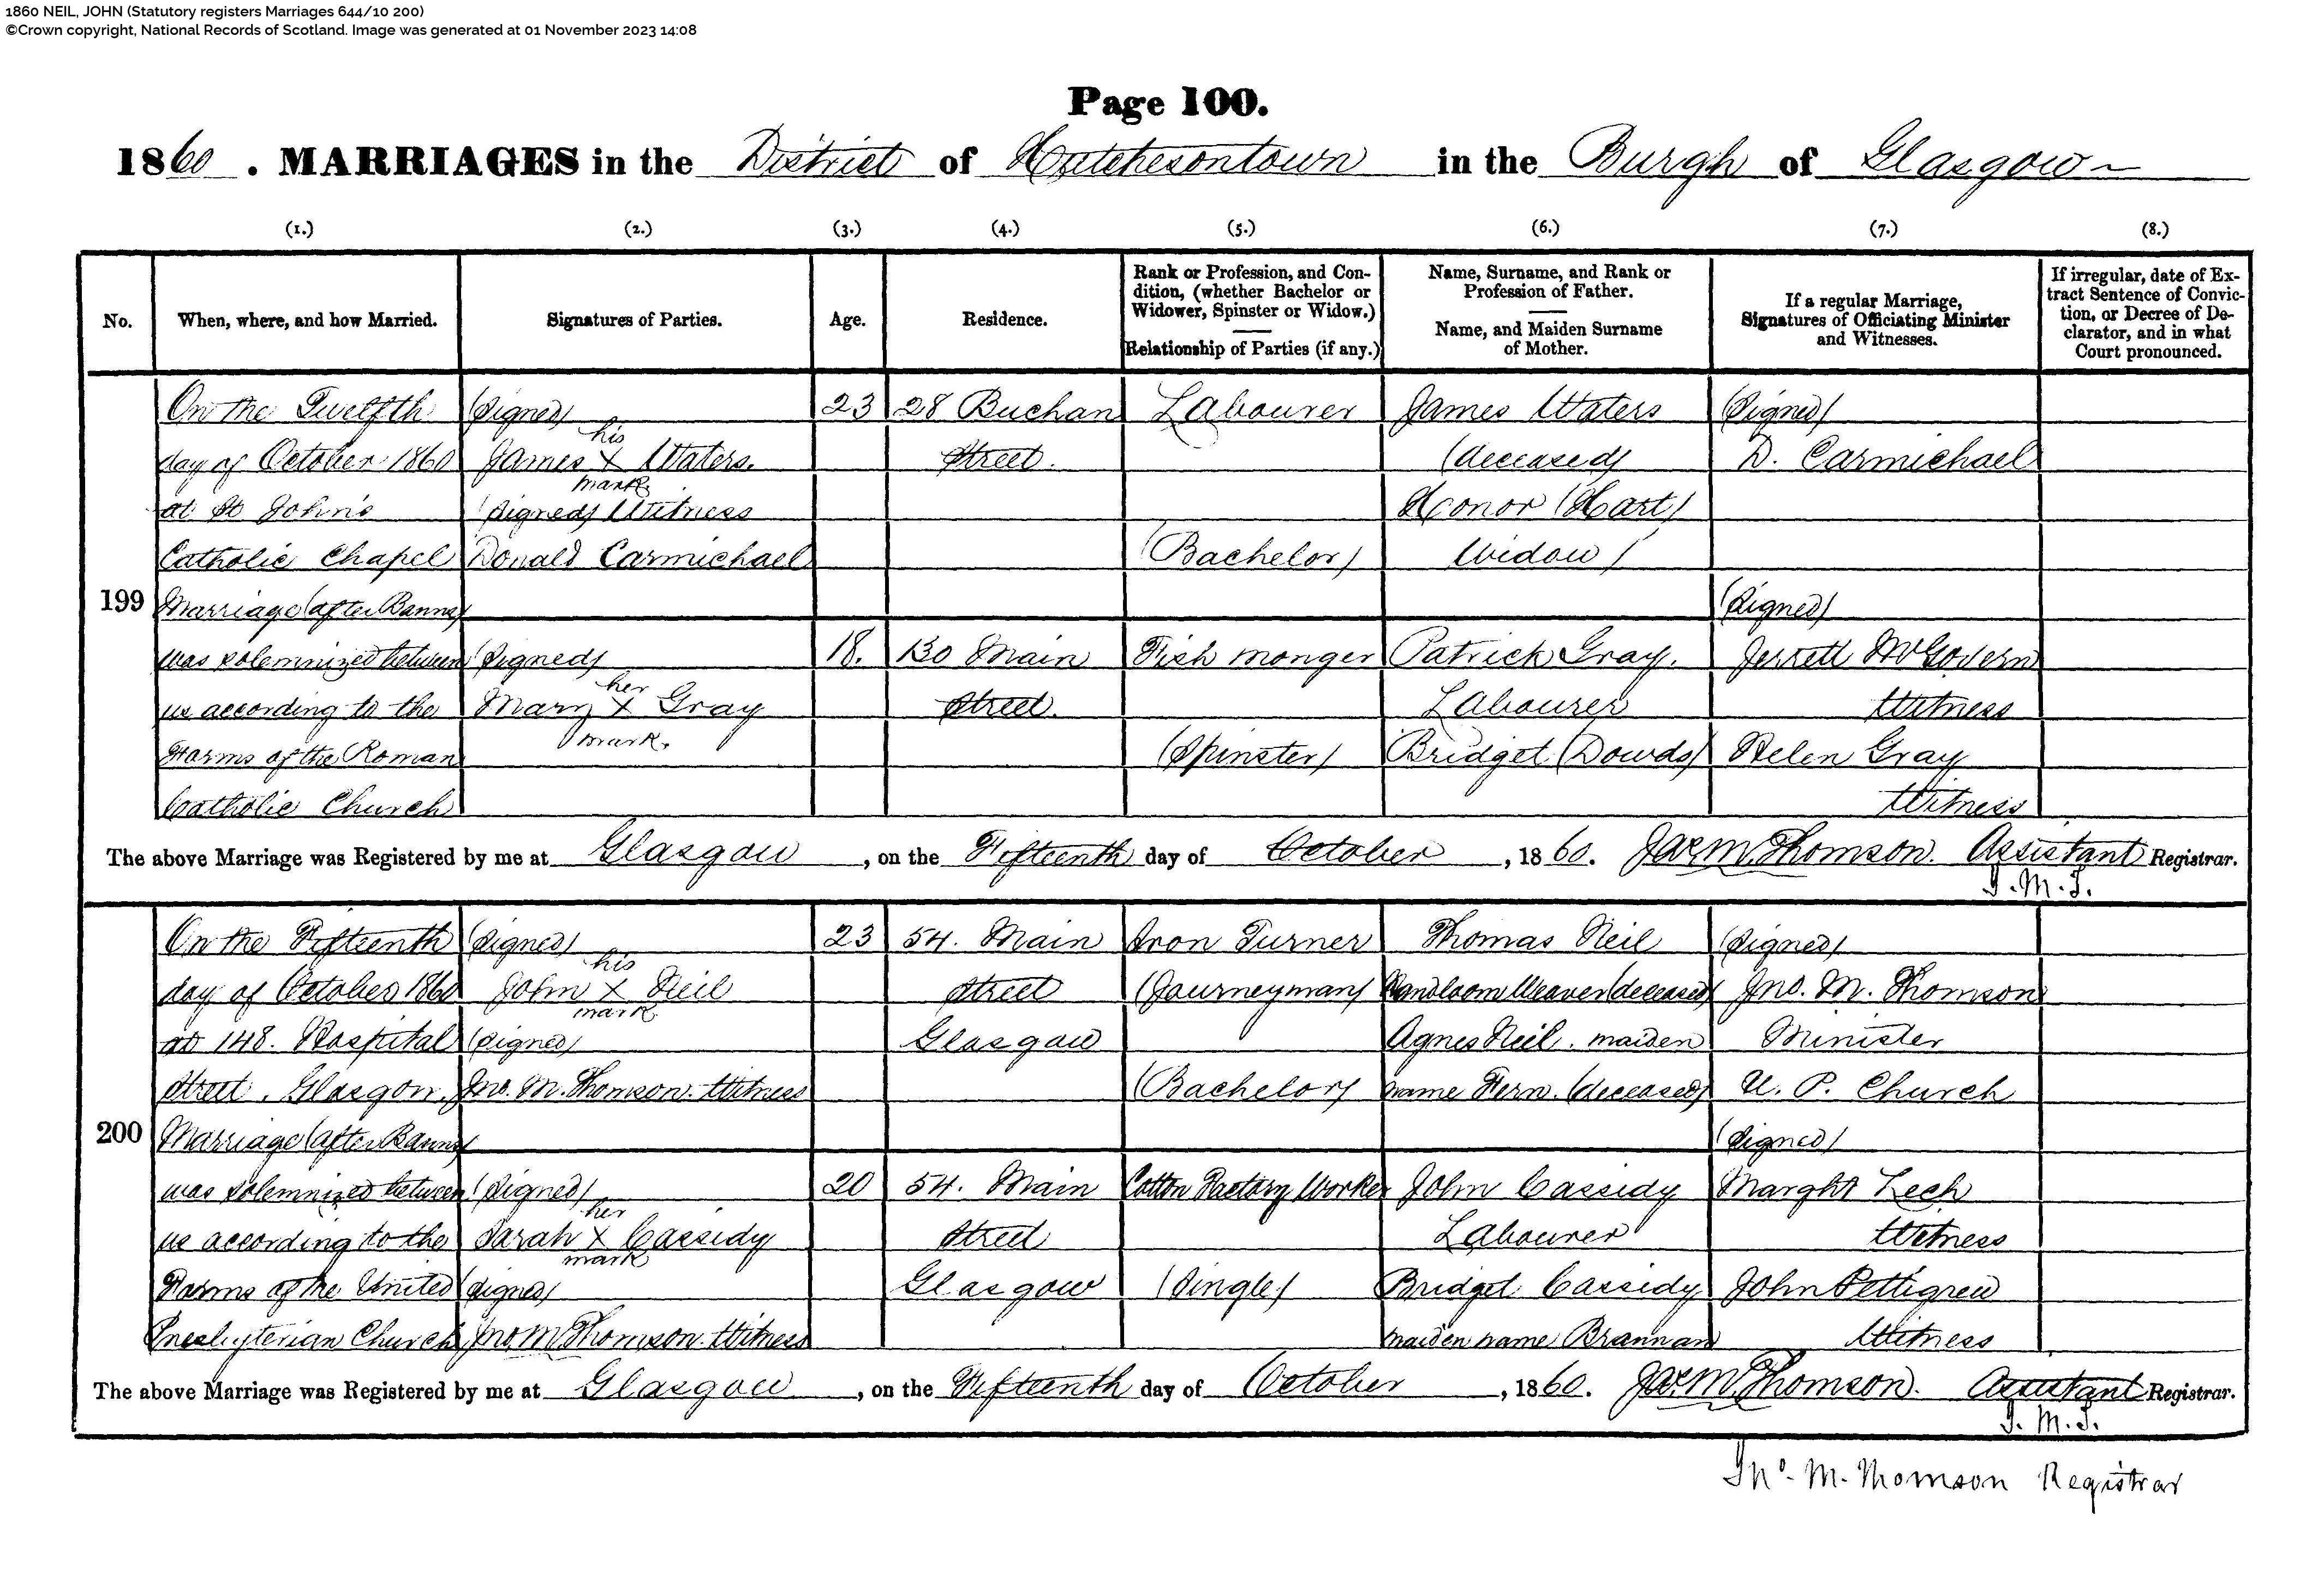 1860 NEIL, JOHN (Statutory registers Marriages 644/10 200)
©Crown copyright, National Records of Scotland. Image was generated at 01 November 2023 14:08
Page 100.
1860. MARRIAGES in the District of Hutchesontown in the Burgh of Glasgow
(1.) (2.) (3.) (4.) (5.) (6.) (7.) (8.)
No.
When, where, and how Married.
Signatures of Parties.
Age.
Residence.
Rank or Profession, and Con-
dition, (whether Bachelor or
Widower, Spinster or Widow.)
Relationship of Parties (if any.)
Name, Surname, and Rank or
Profession of Father.
Name, and Maiden Surname
of Mother.
If a regular Marriage,
Signatures of Officiating Minister
and Witnesses.
If irregular, date of Ex-
tract Sentence of Convic-
tion, or Decree of De-
clarator, and in what
Court pronounced.
199
On the Twelfth
day of October 1860
at St John's
Catholic Chapel
Marriage (after Banns)
was solemnized between
us according to the
Forms of the Roman
Catholic Church
(Signed)
his
James X Waters.
mark
(Signed) Witness
Donald Carmichael
(Signed)
her
Mary X Gray
mark.
23
18.
28 Buchan
Street.
130 Main
Street.
Labourer
(Bachelor)
Fish monger
(Spinster)
James Waters
(deceased)
Honor (Hart)
Widow)
Patrick Gray.
Labourer
Bridget (Dowds)
(Signed)
D. Carmichael
(Signed)
Jerrett McGovern
Witness
Helen Gray
Witness
The above Marriage was Registered by me at Glasgow, on the Fifteenth day of October, 1860. Jas. M. Thomson. Assistant Registrar.
J. M. T.
200
On the Fifteenth
day of October 1860
at 148. Hospital
Street. Glasgow.
Marriage (after Banns)
was solemnized between
us according to the
Forms of the United
Presbyterian Church
(Signed)
his
John X Neil
mark
(Signed)
Jno. M. Thomson. Witness
(Signed)
her
Sarah X Cassidy
mark
(Signed)
Jno. M. Thomson. Witness
23
20
54. Main
Street
Glasgow
54. Main
Street
Glasgow
Iron Turner
(Journeyman)
(Bachelor)
Cotton Factory Worker
(Single)
Thomas Neil
Handloom Weaver (deceased)
Agnes Neil. maiden
name Fern. (deceased)
John Cassidy
Labourer
Bridget Cassidy
maiden name Brannan
(Signed)
Jno. M. Thomson
Minister
U. P. Church
(Signed)
Marght Lech
Witness
John Pettigrew
Witness
The above Marriage was Registered by me at Glasgow, on the Fifteenth day of October, 1860. Jas. M. Thomson. Assistant Registrar.
J. M. T.
Jno. M. Thomson Registrar